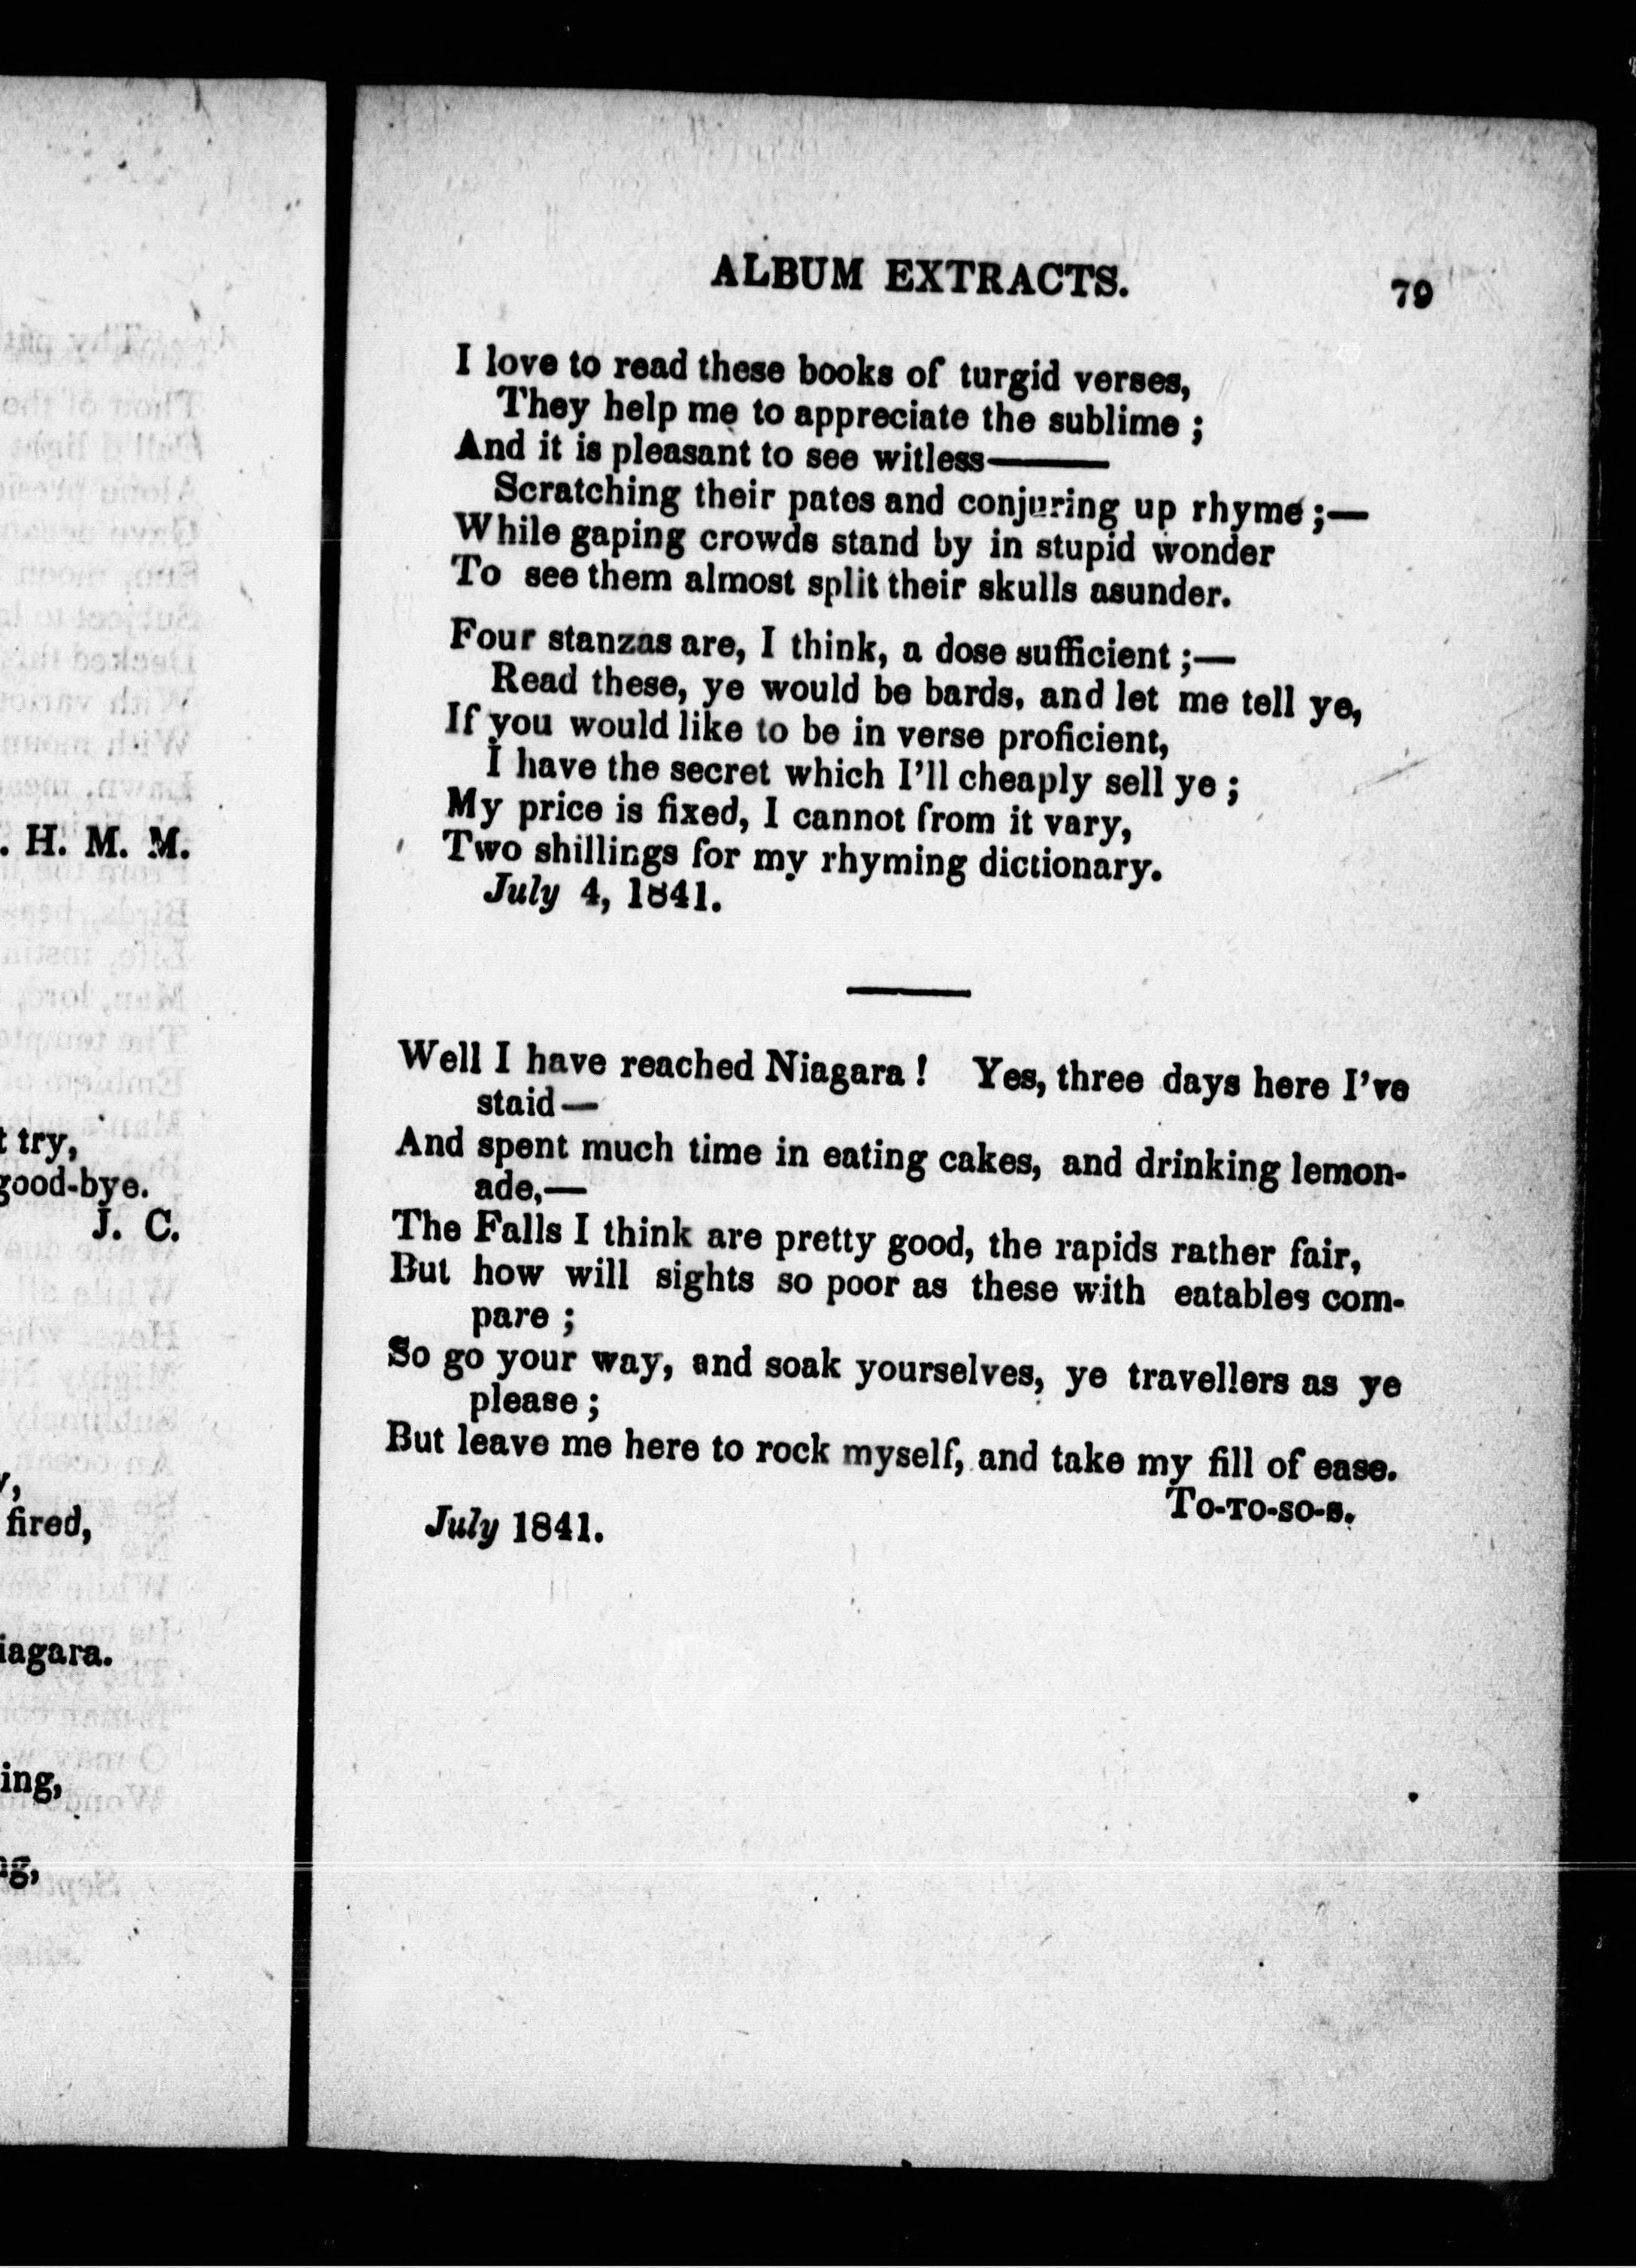 . H. M. M.
try,
good-bye.
J. C.
fired,
iagara.
ing,
ALBUM EXTRACTS. 79
I love to read these books of turgid verses,
They help me to appreciate the sublime ;
And it is pleasant to see witless———
Scratching their pates and conjuring up rhyme ;—
While gaping crowds stand by in stupid wonder
To see them almost split their skulls asunder.
Four stanzas are, I think, a dose sufficient ;—
Read these, ye would be bards, and let me tell ye,
If you would like to be in verse proficient,
I have the secret which I'll cheaply sell ye ;
My price is fixed, I cannot from it vary,
Two shillings for my rhyming dictionary.
July 4, 1841.
Well I have reached Niagara ! Yes, three days here I've
staid—
And spent much time in eating cakes, and drinking lemon-
ade,—
The Falls I think are pretty good, the rapids rather fair,
But how will sights so poor as these with eatables com-
pare ;
So go your way, and soak yourselves, ye travellers as ye
please ;
But leave me here to rock myself, and take my fill of ease.
To-to-so-s.
July 1841.